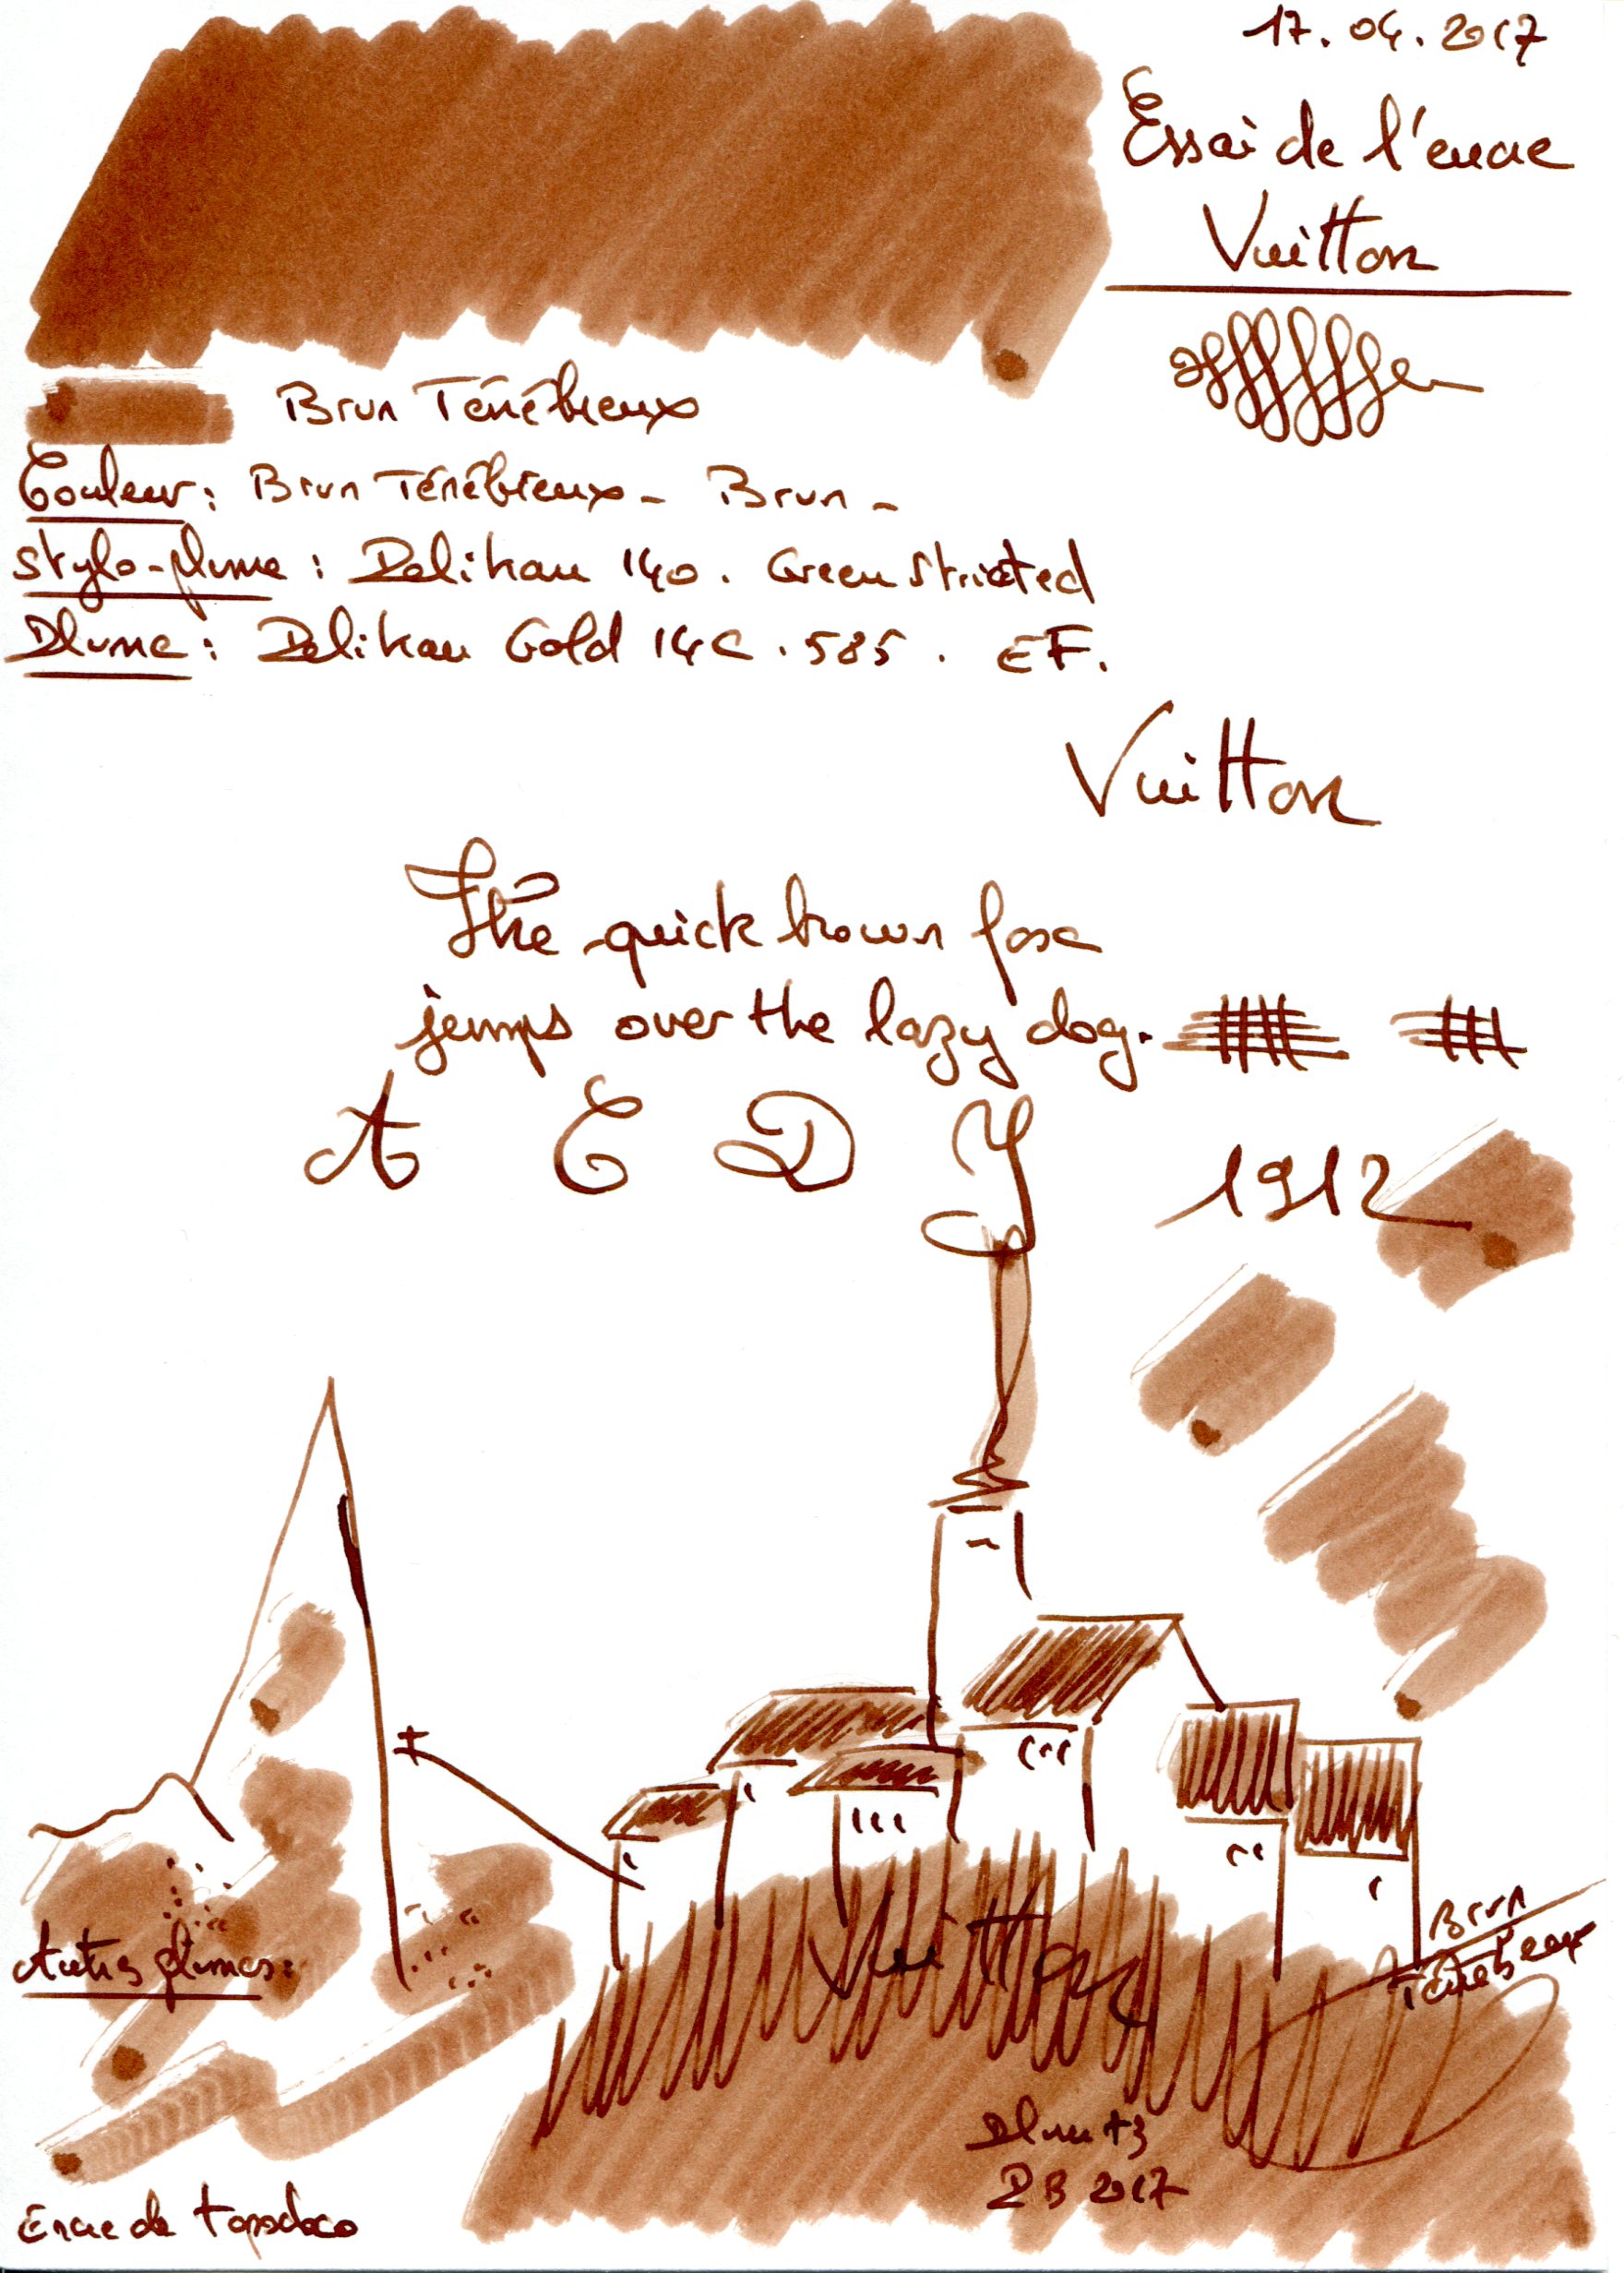 17.04.2017
Essai de l'encre
Vuitton
Brun Ténébreux
Couleur : Brun Ténébreux - Brun -
Stylo-plume : Pelikan 140. Green Striated
Plume : Pelikan Gold 14C. 585. EF.
Vuitton
The quick brown fox
jumps over the lazy dog.
A E D Y
1912
Vuitton
Brun
Ténébreux
Autres plumes :
PB 2017
Encre de